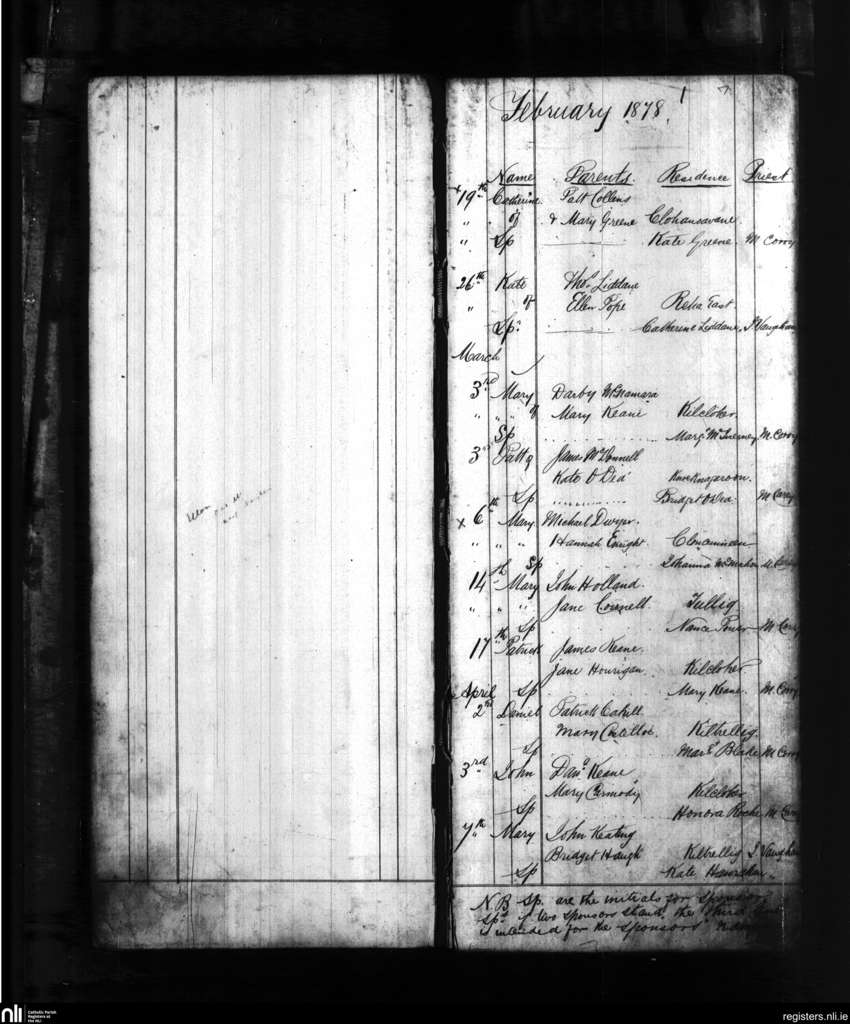 February 1878
1
Name Parents Residence Priest
x 19th Catherine Patt Collens
" of & Mary Greene Clohansavane
" Sp Kate Greene M Corry
26th Kate Thos Liddane
" of Ellen Pope Reha East
Sp. Catherine Liddane J Vaughan
March
3rd Mary Darby McNamara
" " " of Mary Keane Kilcloher
Sp Margt McInerney M. Corry
3 Patt of James McDonnell
Kate O Dea Knocknagaroon.
Sp Bridget O Dea. M Corry
x 6th Mary Michael Dwyer.
" " " Hannah Enright
Sp Johanna McMahon M Corry
14th Mary John Holland.
" " " Jane Connell. Tullig
Sp Nance Power M Corry
17th Patrick James Keane.
Jane Hourigan Kilcloher
April Sp Mary Keane. M. Corry
2nd Daniel Patrick Cahill
Mary Kiltrellig.
Sp Mart Blake M Corry
3rd John Danl Keane
Mary Carmody Kilcloher
Sp Honora Roche M Corry
7th Mary John Keating
Bridget Haugh Kiltrellig J Vaughan
Sp Kate Hanrahan
N B Sp. are the initials for Sponsor
Sps if two sponsors stand, the third line
is intended for the Sponsors' names
nli
Catholic Parish
Registers at
the NLI
registers.nli.ie